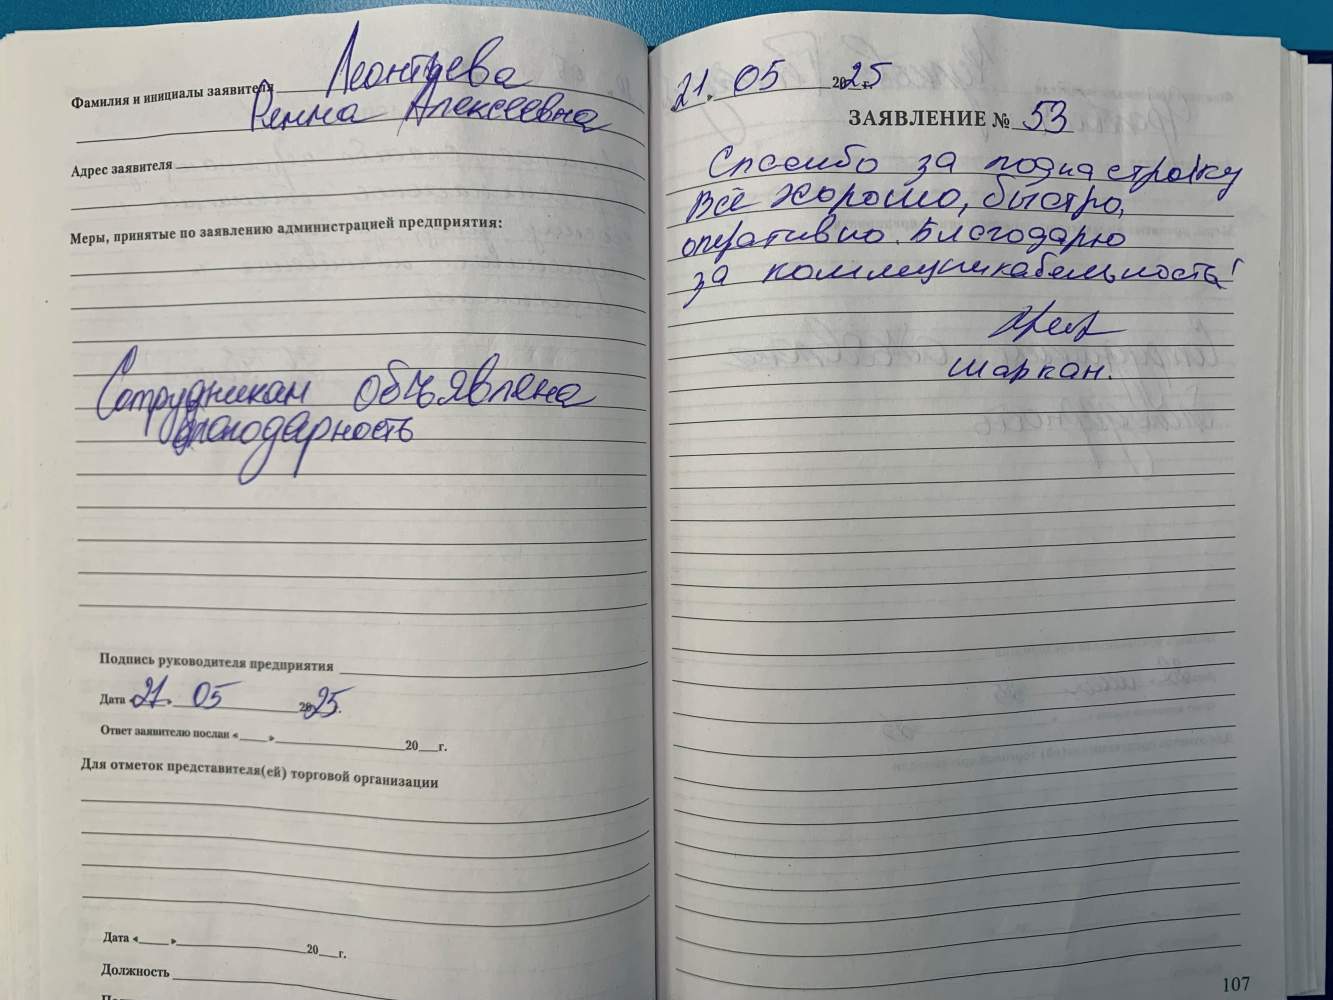 Фамилия и инициалы заявителя Леонтьева
Римма Алексеевна
Адрес заявителя
Меры, принятые по заявлению администрацией предприятия:
Сотрудникам объявлена
благодарность
Подпись руководителя предприятия
Дата «21» 05 2025.
Ответ заявителю послан «___»___ 20___г.
Для отметок представителя(ей) торговой организации
Дата «___»___ 20___г.
Должность
21. 05 2025 г.
ЗАЯВЛЕНИЕ № 53
Спасибо за поднастройку
Всё хорошо, быстро,
оперативно. Благодарю
за коммуникабельность!
Шаркан.
107